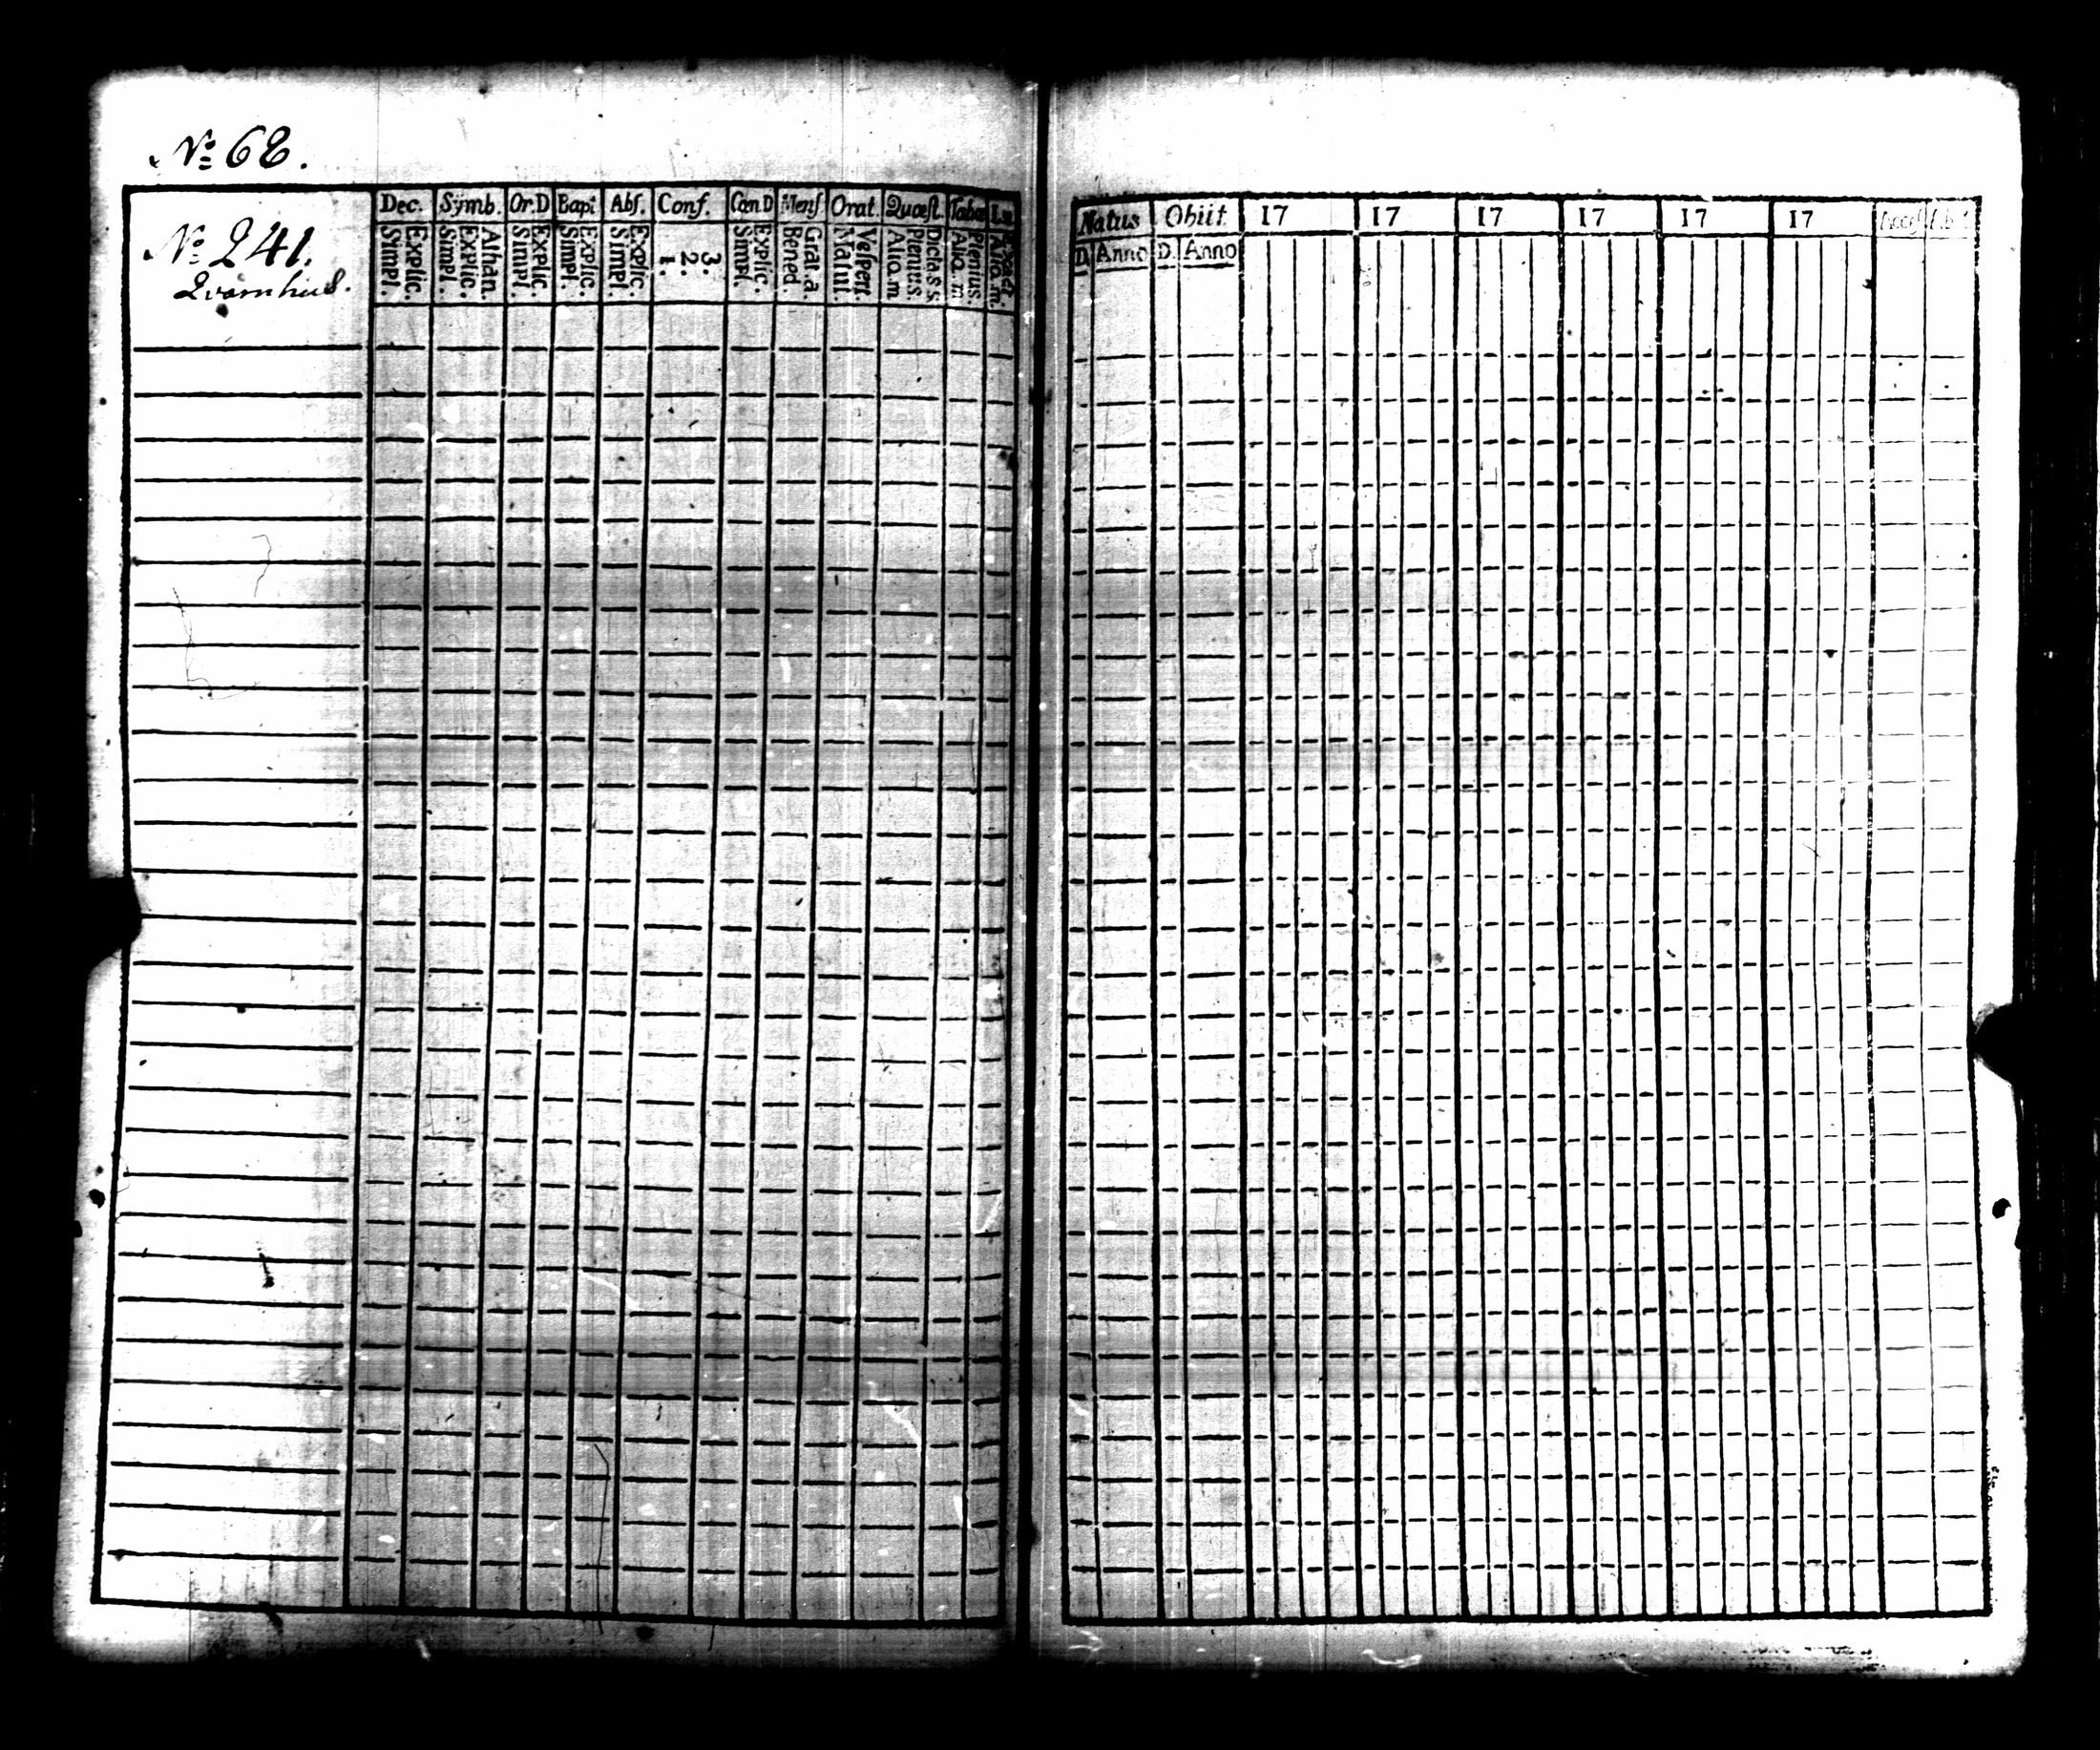 № 68.
№ 241.
Qvarnhus.
Dec. Symb. Or.D Bapt Abs. Conf. Cœn D Mens Orat. Quæst. Tabæ
Simpl. Explic. Simpl. Explic. Athan. Simpl. Explic. Simpl. Explic. Simpl. Explic. 1. 2. 3. Simpl. Explic. Bened. Grat. a. Matut. Vespert. Aliq. m Plenius. Dicta s s. Aliq. m Plenius. Aliq. m. Exact.
Natus Obiit 17 17 17 17 17 17
D. Anno D. Anno